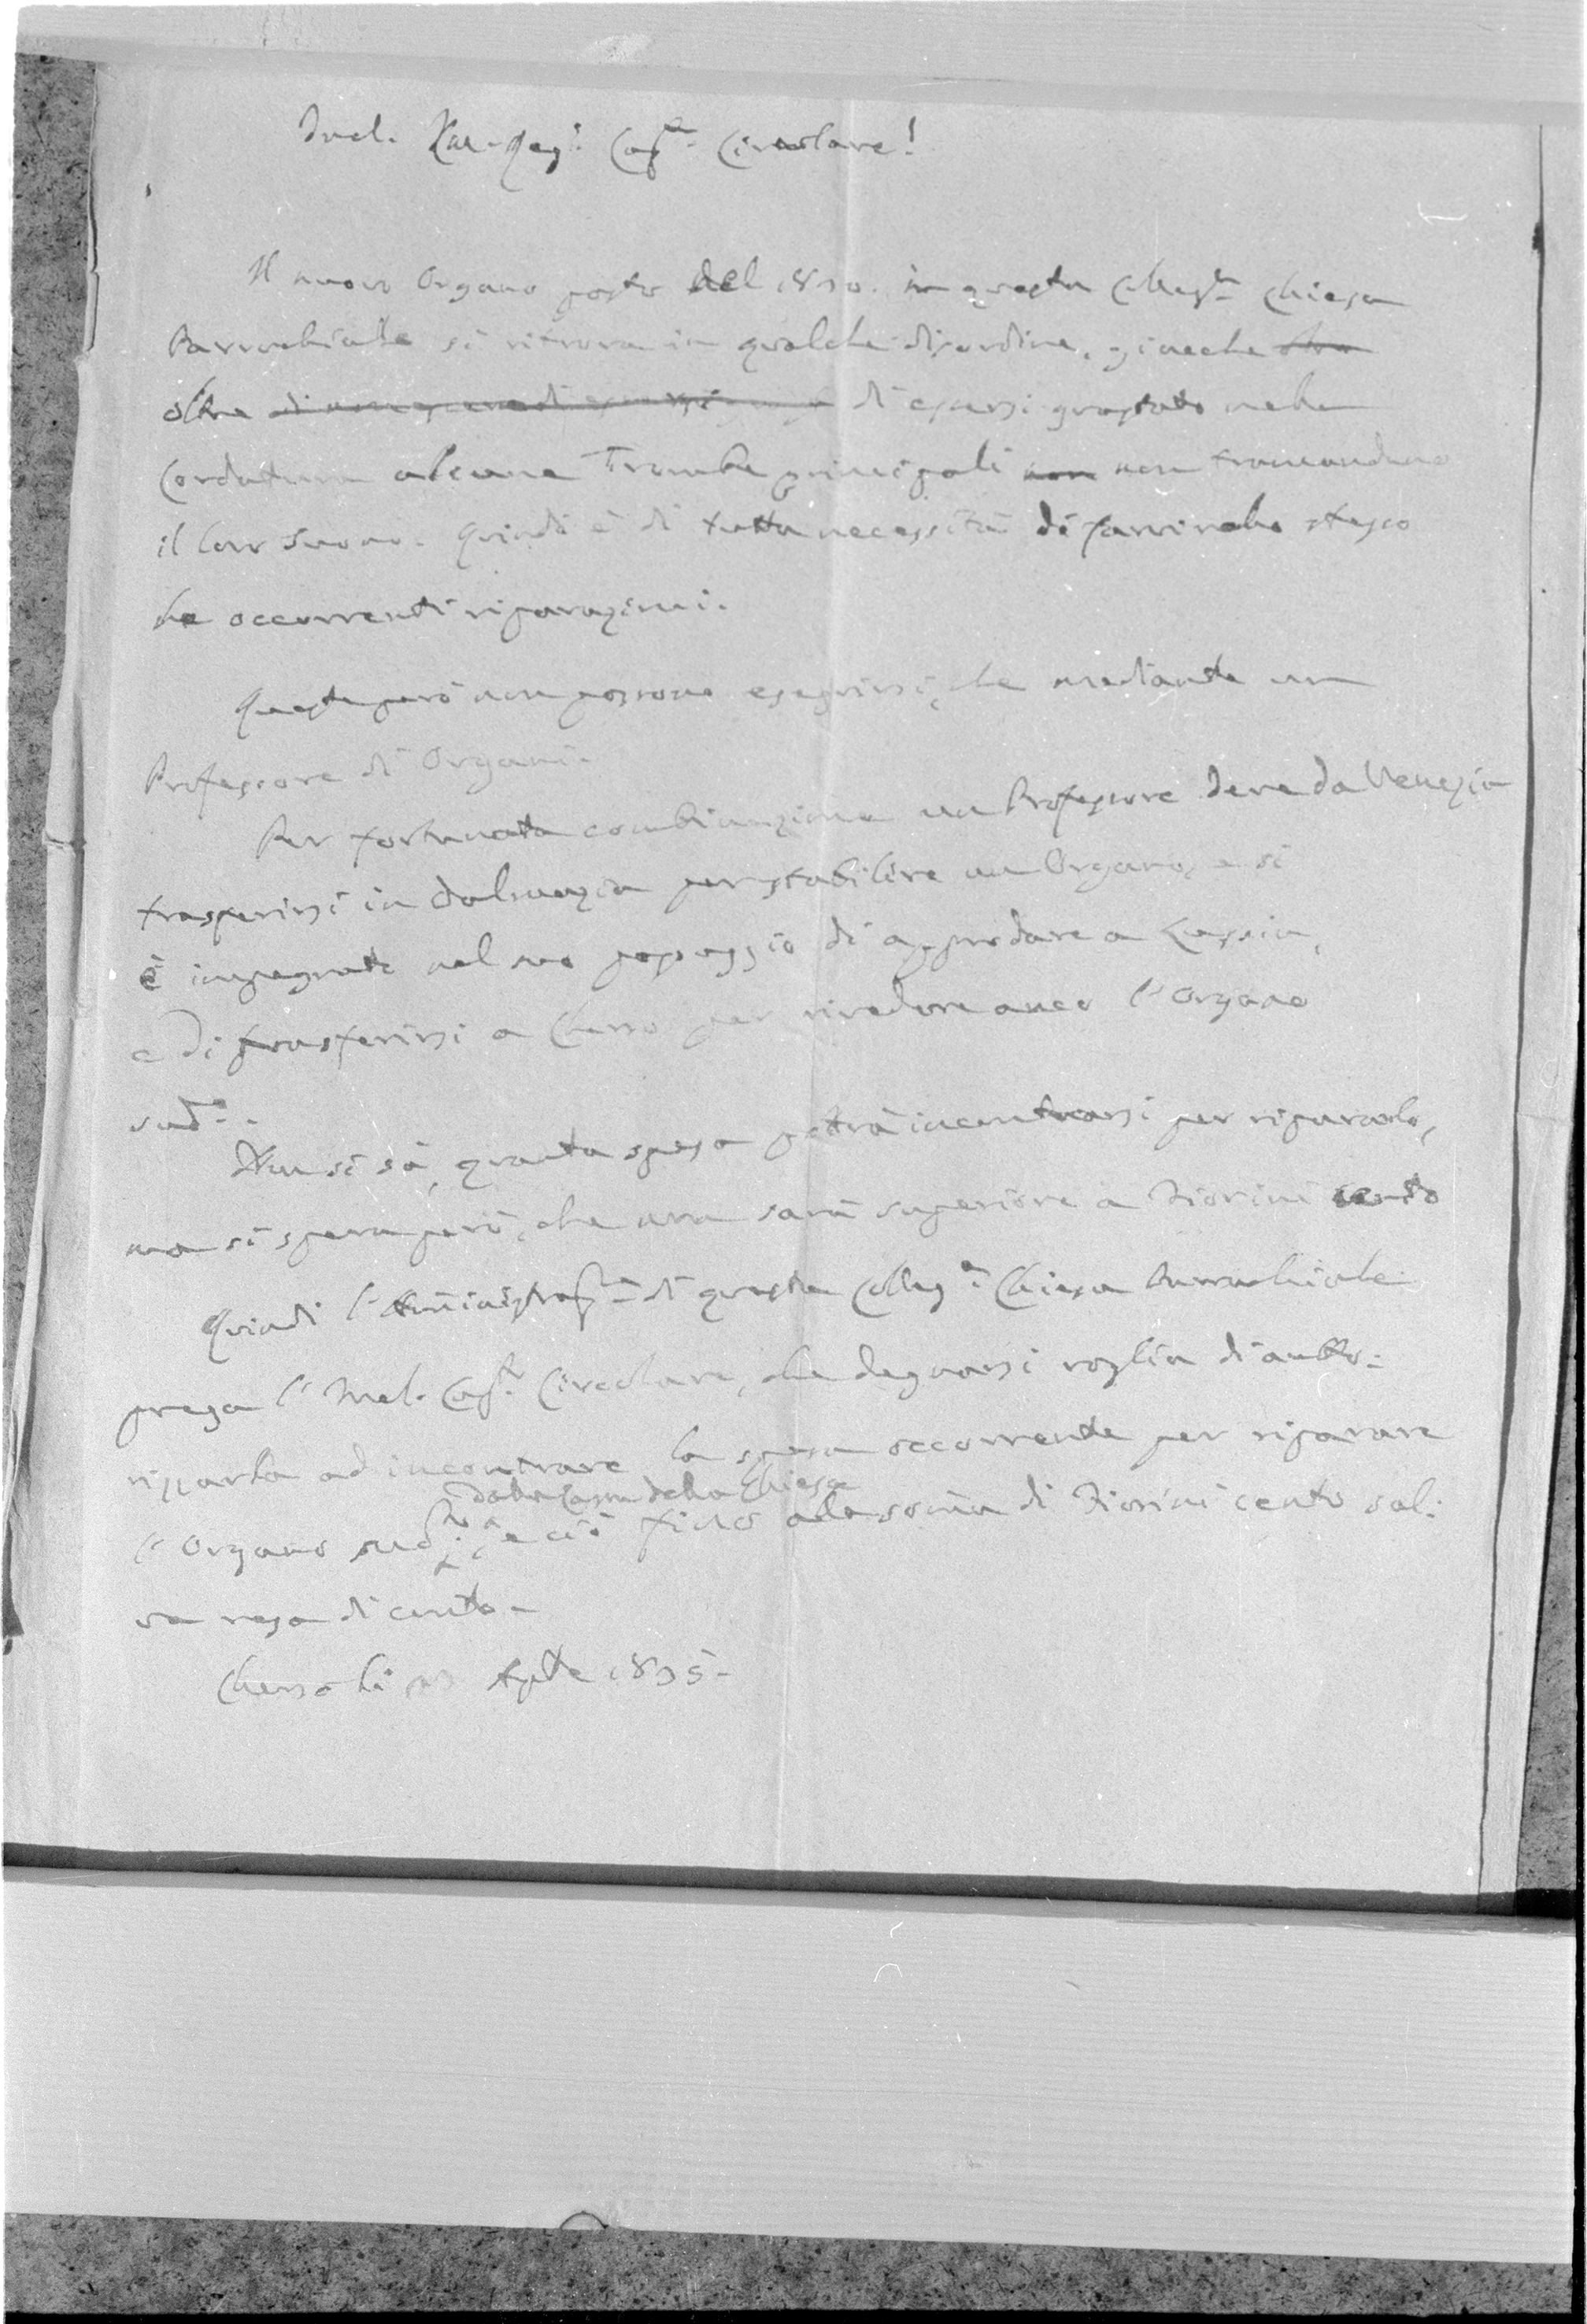 Incl. Ces. Reg.° Cap.to Circolare!
Il nuovo Organo posto del 1830. in questa Colleg.ta Chiesa
Parrochiale si ritrova in qualche disordine, giacche
oltre di essersi guastato nella
Cordatura alcune Trombe principali non non tramandano
il loro suono. Quindi è di tutta necessità di farvi nello stesso
le occorrenti riparazioni.
Queste però non possono eseguirsi, che mediante un
Professore di Organi.
Per fortunata combinazione un Professore deve da Venezia
trasferirsi in Dalmazia per stabilire un Organo, e si
è impegnato nel suo passaggio di approdare a Lussin,
e di trasferirsi a Cherso per rivedere anco l'Organo
sud.°.
Non si sà, quanta spesa potrà incontrarsi per ripararlo,
ma si spera però, che non sarà superiore a Fiorini cento
Quindi l'Amministraz.ne di questa Colleg.a Chiesa Parrochiale
prega l'Incl. Cap.to Circolare, che degnarsi voglia di autto-
rizzarla ad incontrare la spesa occorrente per riparare
dalla Cassa della Chiesa
l'Organo sud.to, e ciò fino alla soma di Fiorini cento sal-
va resa di conto.
Cherso li Aple 1835.